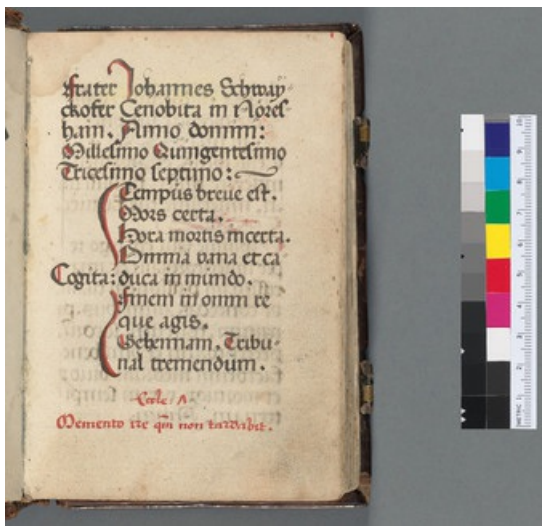 Frater Johannes Schway
ckofer Cenobita in Mores
ham. Anno domini:
Millesimo Quingentesimo
Tricesimo septimo:
Tempus breve est.
Mors certa.
Hora mortis incerta.
Omnia vana et ca
Cogita: duca in mundo.
Finem in omni re
que agis.
Gehennam. Tribu-
nal tremendum.
A
Memento non tardabit.